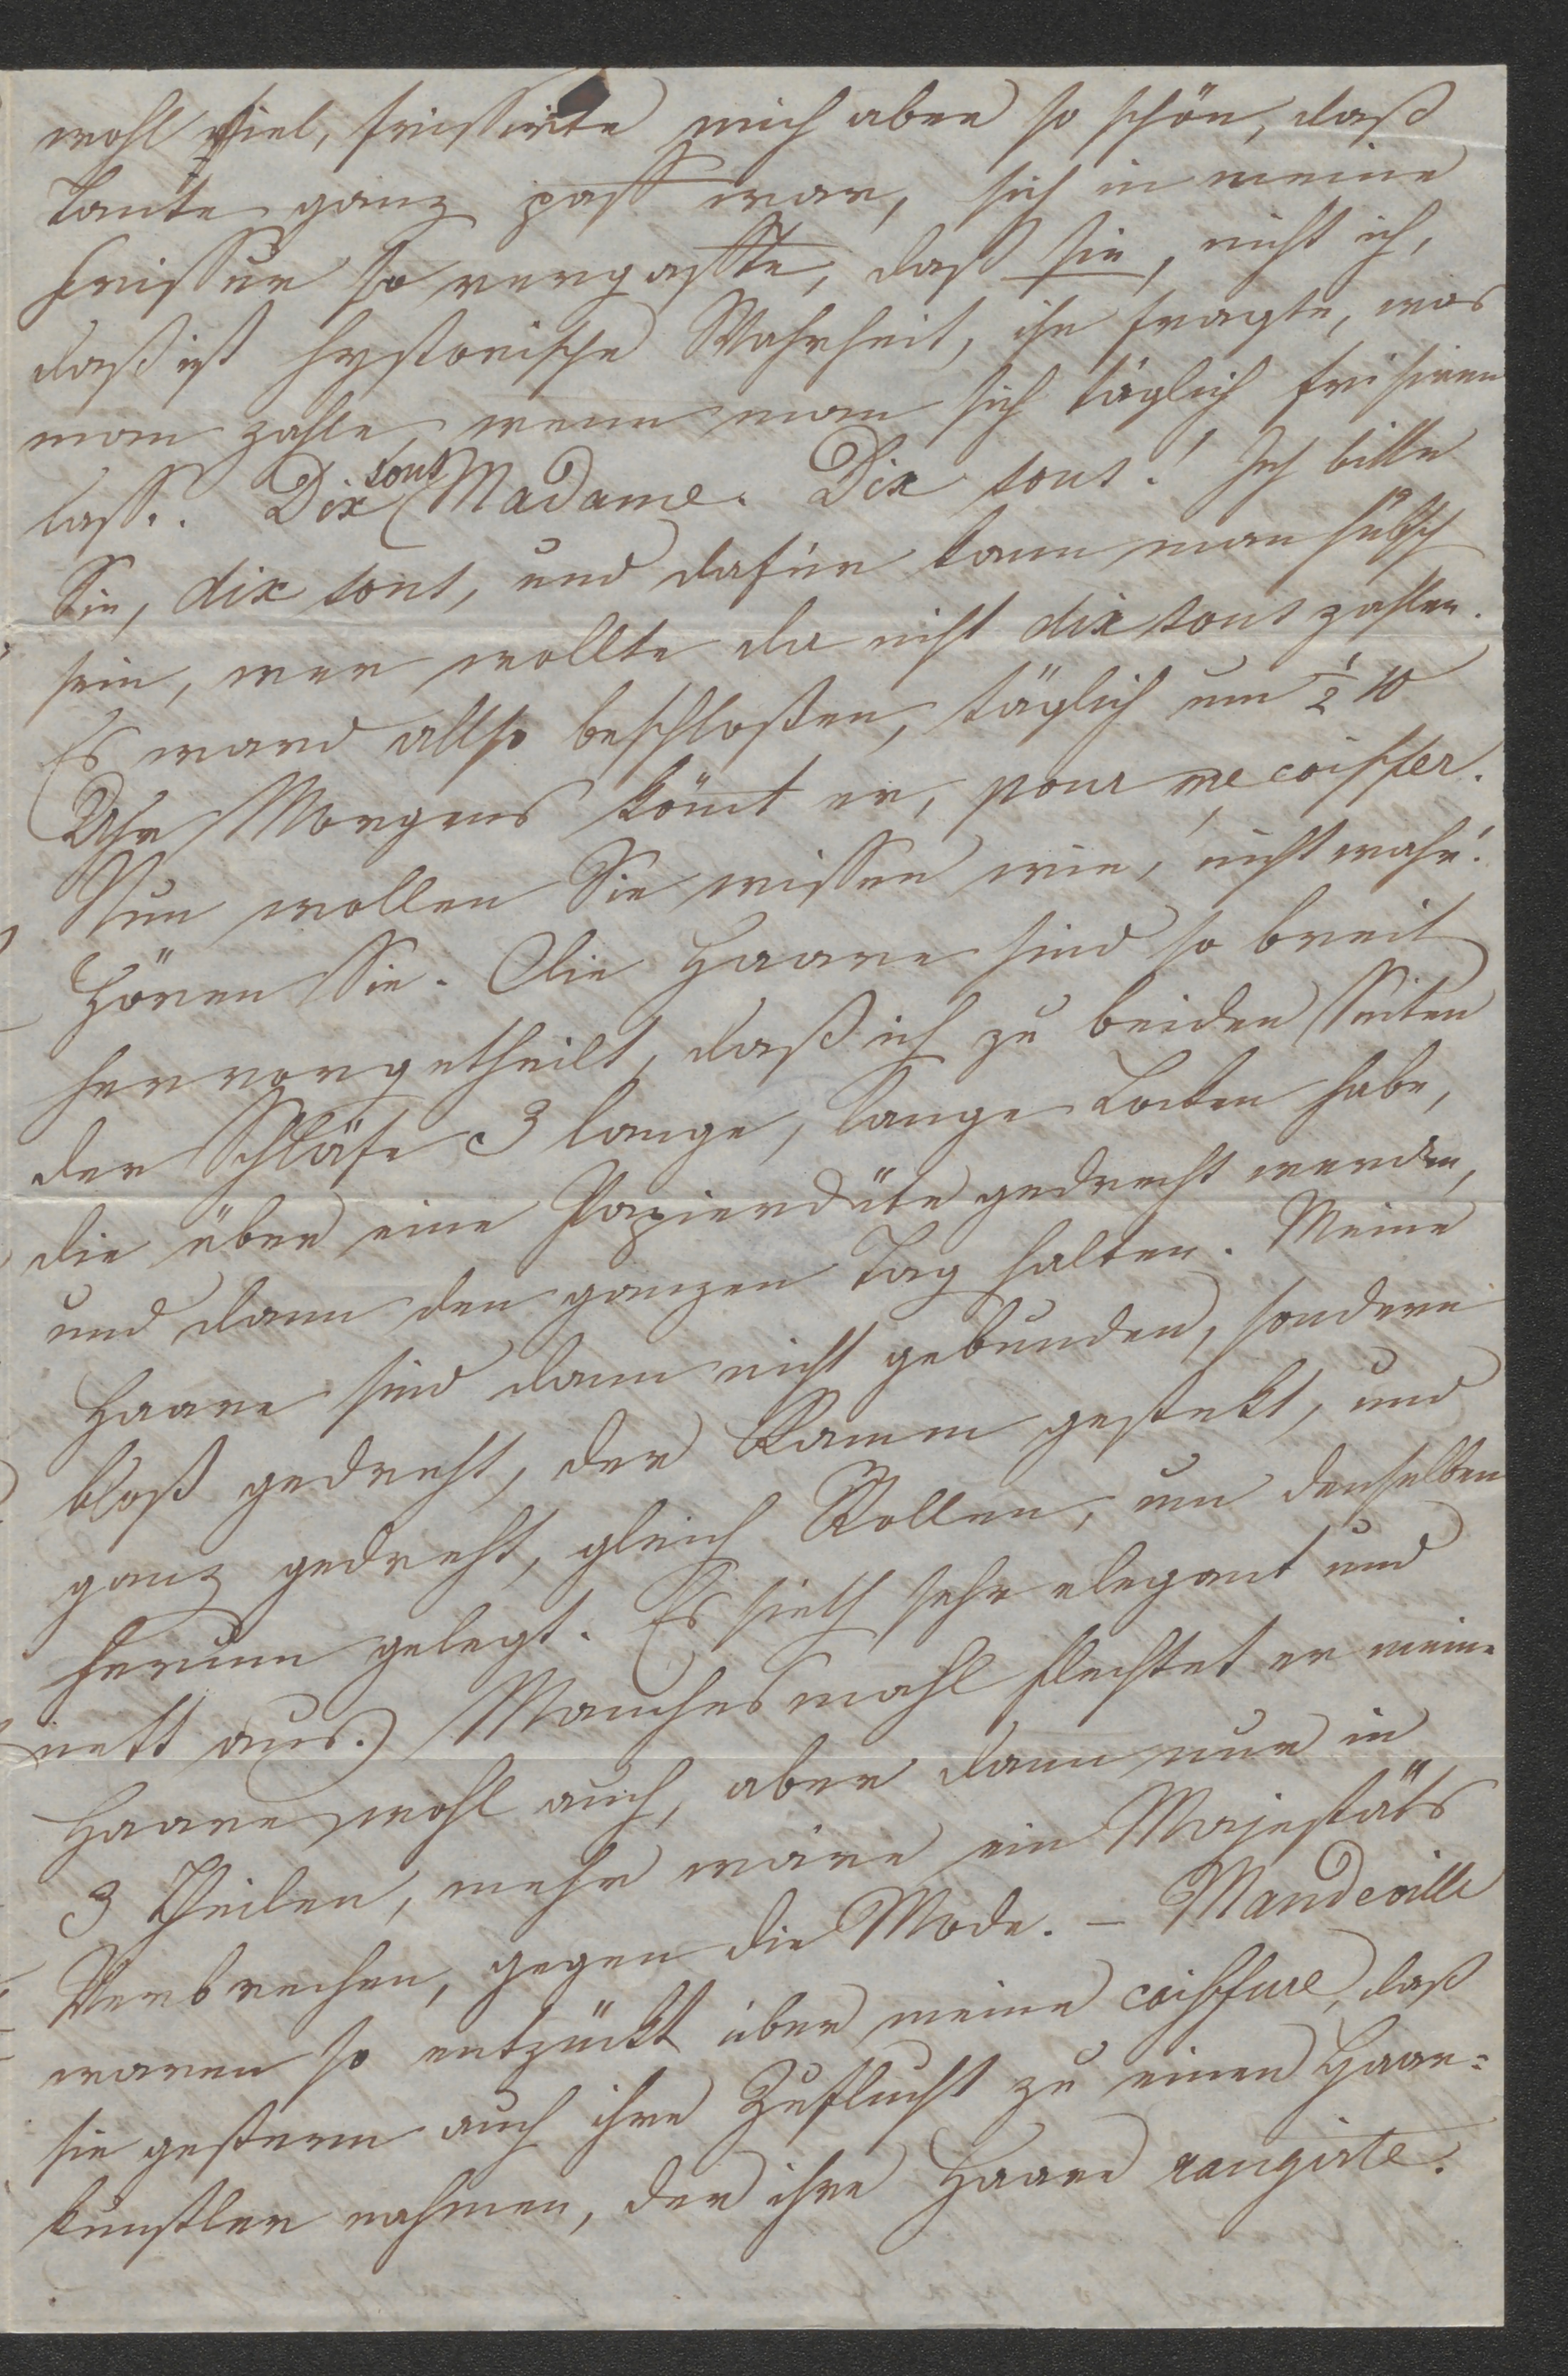 wohl viel, frissirte mich aber so schön, daß
Tante ganz paff war, sich in meine
Frissur so vergaffte, daß sie, nicht ich,
daß ist hystorische Wahrheit, ihn fragte, was
man zahle, wenn man sich täglich frisiren
lasse. Dix sous Madame. Dix sous! Ich bitte
Sie, dix sous, und dafür kann man hübsch
sein, wer wollte da nicht dix sous zahlen.
Es ward allso beschloßen, täglich um ½ 10
Uhr Morgens kömt er, pour me coiffer.
Nun wollen Sie wissen wie, nicht wahr!
Hören Sie. Die Haare sind so breit
hervorgetheilt, daß ich zu beiden Seiten
der Schläfe 3 lange, lange Locken habe,
die über eine Papierdüte gedreht werden,
und dann den ganzen Tag halten. Meine
Haare sind dann nicht gebunden, sondern
bloß gedreht, der Kamm gestekt, und
ganz gedreht, gleich Rollen, um denselben
herum gelegt. Es sieth sehr elegant und
nett aus. Manchesmahl flechtet er meine
Haare wohl auch, aber dann nur in
3 Theilen, mehr wäre ein Majestäts
Verbrechen, gegen die Mode. – Mandeville
waren so entzückt über meine coiffure, daß
sie gestern auch ihre Zuflucht zu einen Haar=
künstler nahmen, der ihre Haare rangirte.